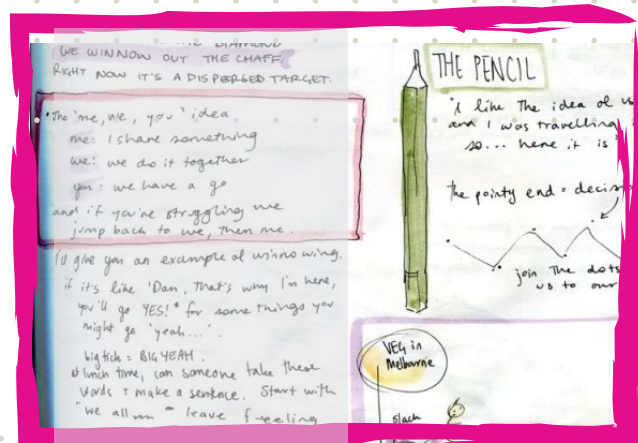 WE WINNOW OUT THE CHAFF
RIGHT NOW IT'S A DISPERSED TARGET.
• The 'me, we, you' idea
me: I share something
we: we do it together
you: we have a go
and if you're struggling we
jump back to we, then me.
I'd give you an example of winnowing.
if it's like 'Dan, that's why I'm here,
you'll go YES!' * for some things you
might go 'yeah...'.
big tick = BIG YEAH.
At lunch time, can someone take these
words & make a sentence. Start with
"we all leave feeling
THE PENCIL
'I like the idea of us
and I was travelling
so... here it is
the pointy end = decis
join the dots
us to our
VEG in
Melbourne
slack